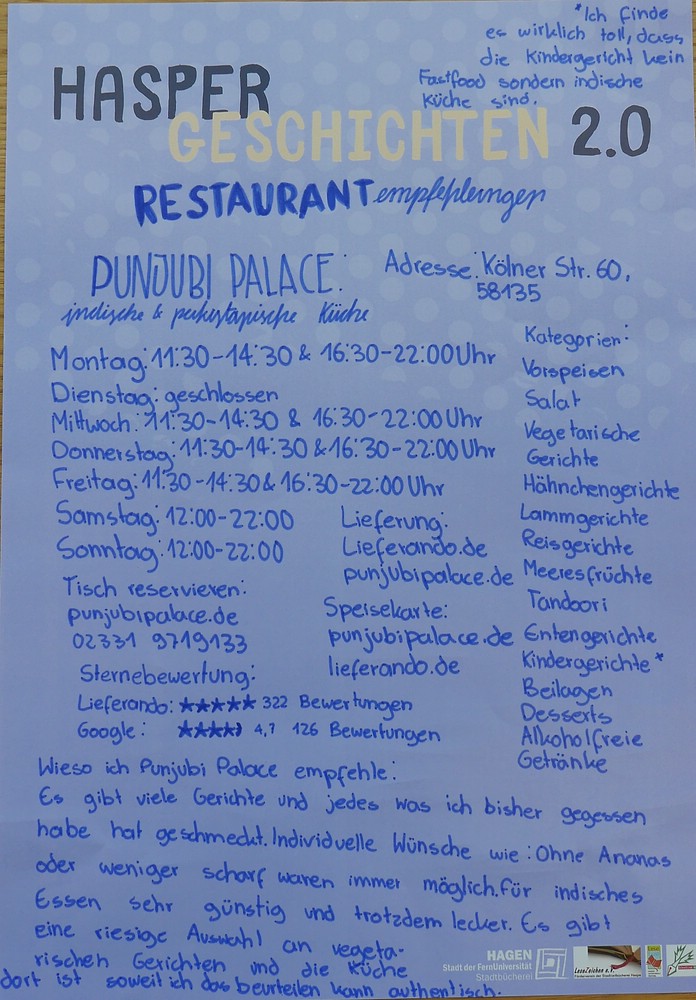 *Ich finde
es wirklich toll, dass
die Kindergericht kein
Fastfood sondern indische
Küche sind.
HASPER
GESCHICHTEN 2.0
RESTAURANT empfehlungen
PUNJUBI PALACE:
indische & pakistanische Küche
Adresse: Kölner Str. 60,
58135
Montag: 11:30-14:30 & 16:30-22:00 Uhr
Dienstag: geschlossen
Mittwoch: 11:30-14:30 & 16:30-22:00 Uhr
Donnerstag: 11:30-14:30 & 16:30-22:00 Uhr
Freitag: 11:30-14:30 & 16:30-22:00 Uhr
Samstag: 12:00-22:00
Sonntag: 12:00-22:00
Tisch reservieren:
punjubipalace.de
02331 9719133
Lieferung:
Lieferando.de
punjubipalace.de
Speisekarte:
punjubipalace.de
lieferando.de
Sternebewertung:
Lieferando: ★★★★★ 322 Bewertungen
Google: ★★★★ 4,7 126 Bewertungen
Kategorien:
Vorspeisen
Salat
Vegetarische
Gerichte
Hähnchengerichte
Lammgerichte
Reisgerichte
Meeresfrüchte
Tandoori
Entengerichte
Kindergerichte*
Beilagen
Desserts
Alkoholfreie
Getränke
Wieso ich Punjubi Palace empfehle:
Es gibt viele Gerichte und jedes was ich bisher gegessen
habe hat geschmeckt. Individuelle Wünsche wie: Ohne Ananas
oder weniger scharf waren immer möglich. Für indisches
Essen sehr günstig und trotzdem lecker. Es gibt
eine riesige Auswahl an vegeta-
rischen Gerichten und die Küche
dort ist soweit ich das beurteilen kann authentisch.
HAGEN
Stadt der FernUniversität
Stadtbücherei
LeseZeichen e.V.